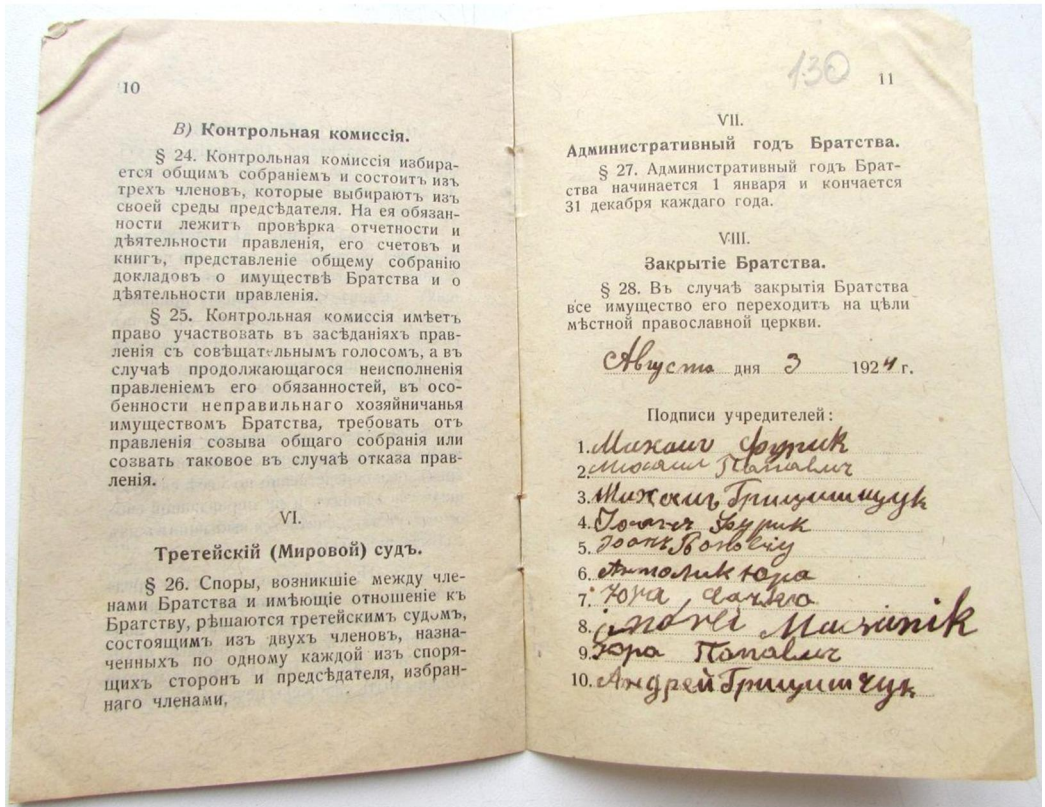 10
В) Контрольная комиссія.
§ 24. Контрольная комиссія избира-
ется общимъ собраніемъ и состоитъ изъ
трехъ членовъ, которые выбираютъ изъ
своей среды предсѣдателя. На ея обязан-
ности лежитъ провѣрка отчетности и
дѣятельности правленія, его счетовъ и
книгъ, представленіе общему собранію
докладовъ о имуществѣ Братства и о
дѣятельности правленія.
§ 25. Контрольная комиссія имѣетъ
право участвовать въ засѣданіяхъ прав-
ленія съ совѣщательнымъ голосомъ, а въ
случаѣ продолжающагося неисполненія
правленіемъ его обязанностей, въ осо-
бенности неправильнаго хозяйничанья
имуществомъ Братства, требовать отъ
правленія созыва общаго собранія или
созвать таковое въ случаѣ отказа прав-
ленія.
VI.
Третейскій (Мировой) судъ.
§ 26. Споры, возникшіе между чле-
нами Братства и имѣющіе отношеніе къ
Братству, рѣшаются третейскимъ судомъ,
состоящимъ изъ двухъ членовъ, назна-
ченныхъ по одному каждой изъ споря-
щихъ сторонъ и предсѣдателя, избран-
наго членами,
130
11
VII.
Административный годъ Братства.
§ 27. Административный годъ Брат-
ства начинается 1 января и кончается
31 декабря каждаго года.
VIII.
Закрытіе Братства.
§ 28. Въ случаѣ закрытія Братства
все имущество его переходитъ на цѣли
мѣстной православной церкви.
Августа дня 3 1924 г.
Подписи учредителей:
1. Михаил Фурик
2. Михаил Папавич
3. Михаилъ Грицишчук
4. Фурик
5.
6. Антолик Юра
7. Юра
8.
9. Юра Папавич
10. Андрей Грицишчук